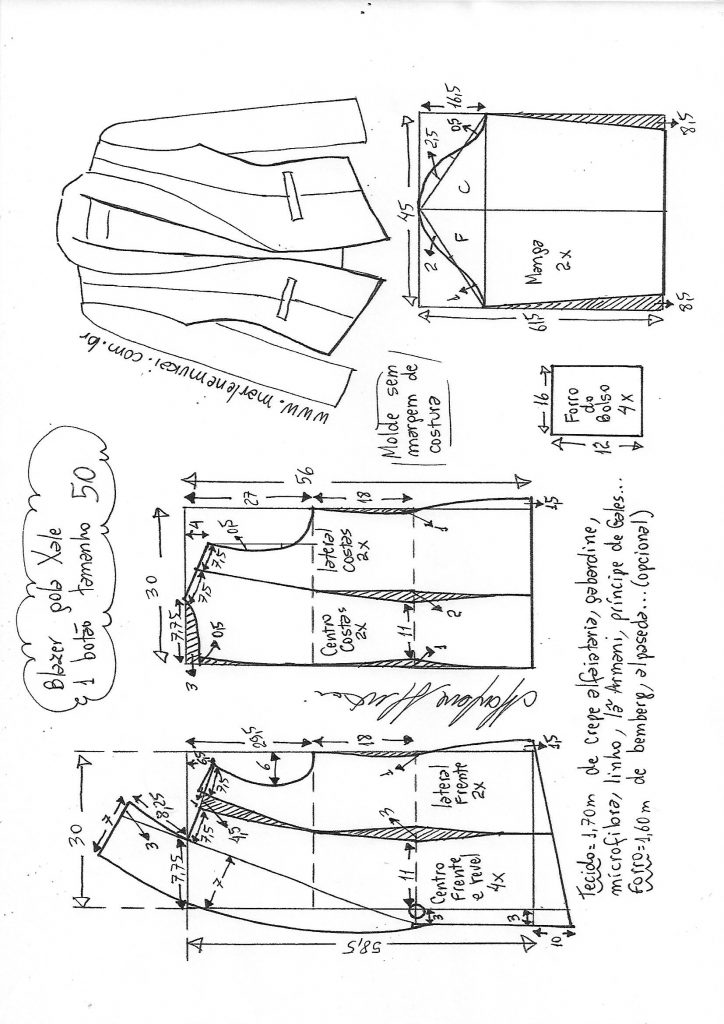 Blazer gola Xale
& 1 botão tamanho 50
www.marlenemukai.com.br
Molde sem
margem de
costura
30
7
3
8,25
7,75
7,5
7,5
4,5
29,5
6
18
1
3
11
7
lateral
Frente
2x
Centro
Frente
e revel
4x
3
3
1,5
10
58,5
30
7,75
3
0,5
7,5
7,5
4
0,5
27
18
56
lateral
costas
2x
Centro
Costas
2x
11
1
2
1
1,5
45
16,5
2,5
0,5
C
F
2
1
Manga
2x
61,5
8,5
8,5
16
12
Forro
do
Bolso
4x
Tecido=1,70m de crepe alfaiataria, gabardine,
microfibra, linho, lã Armani, príncipe de Gales...
Forro=1,60m de bemberg, alpaseda...(opcional)